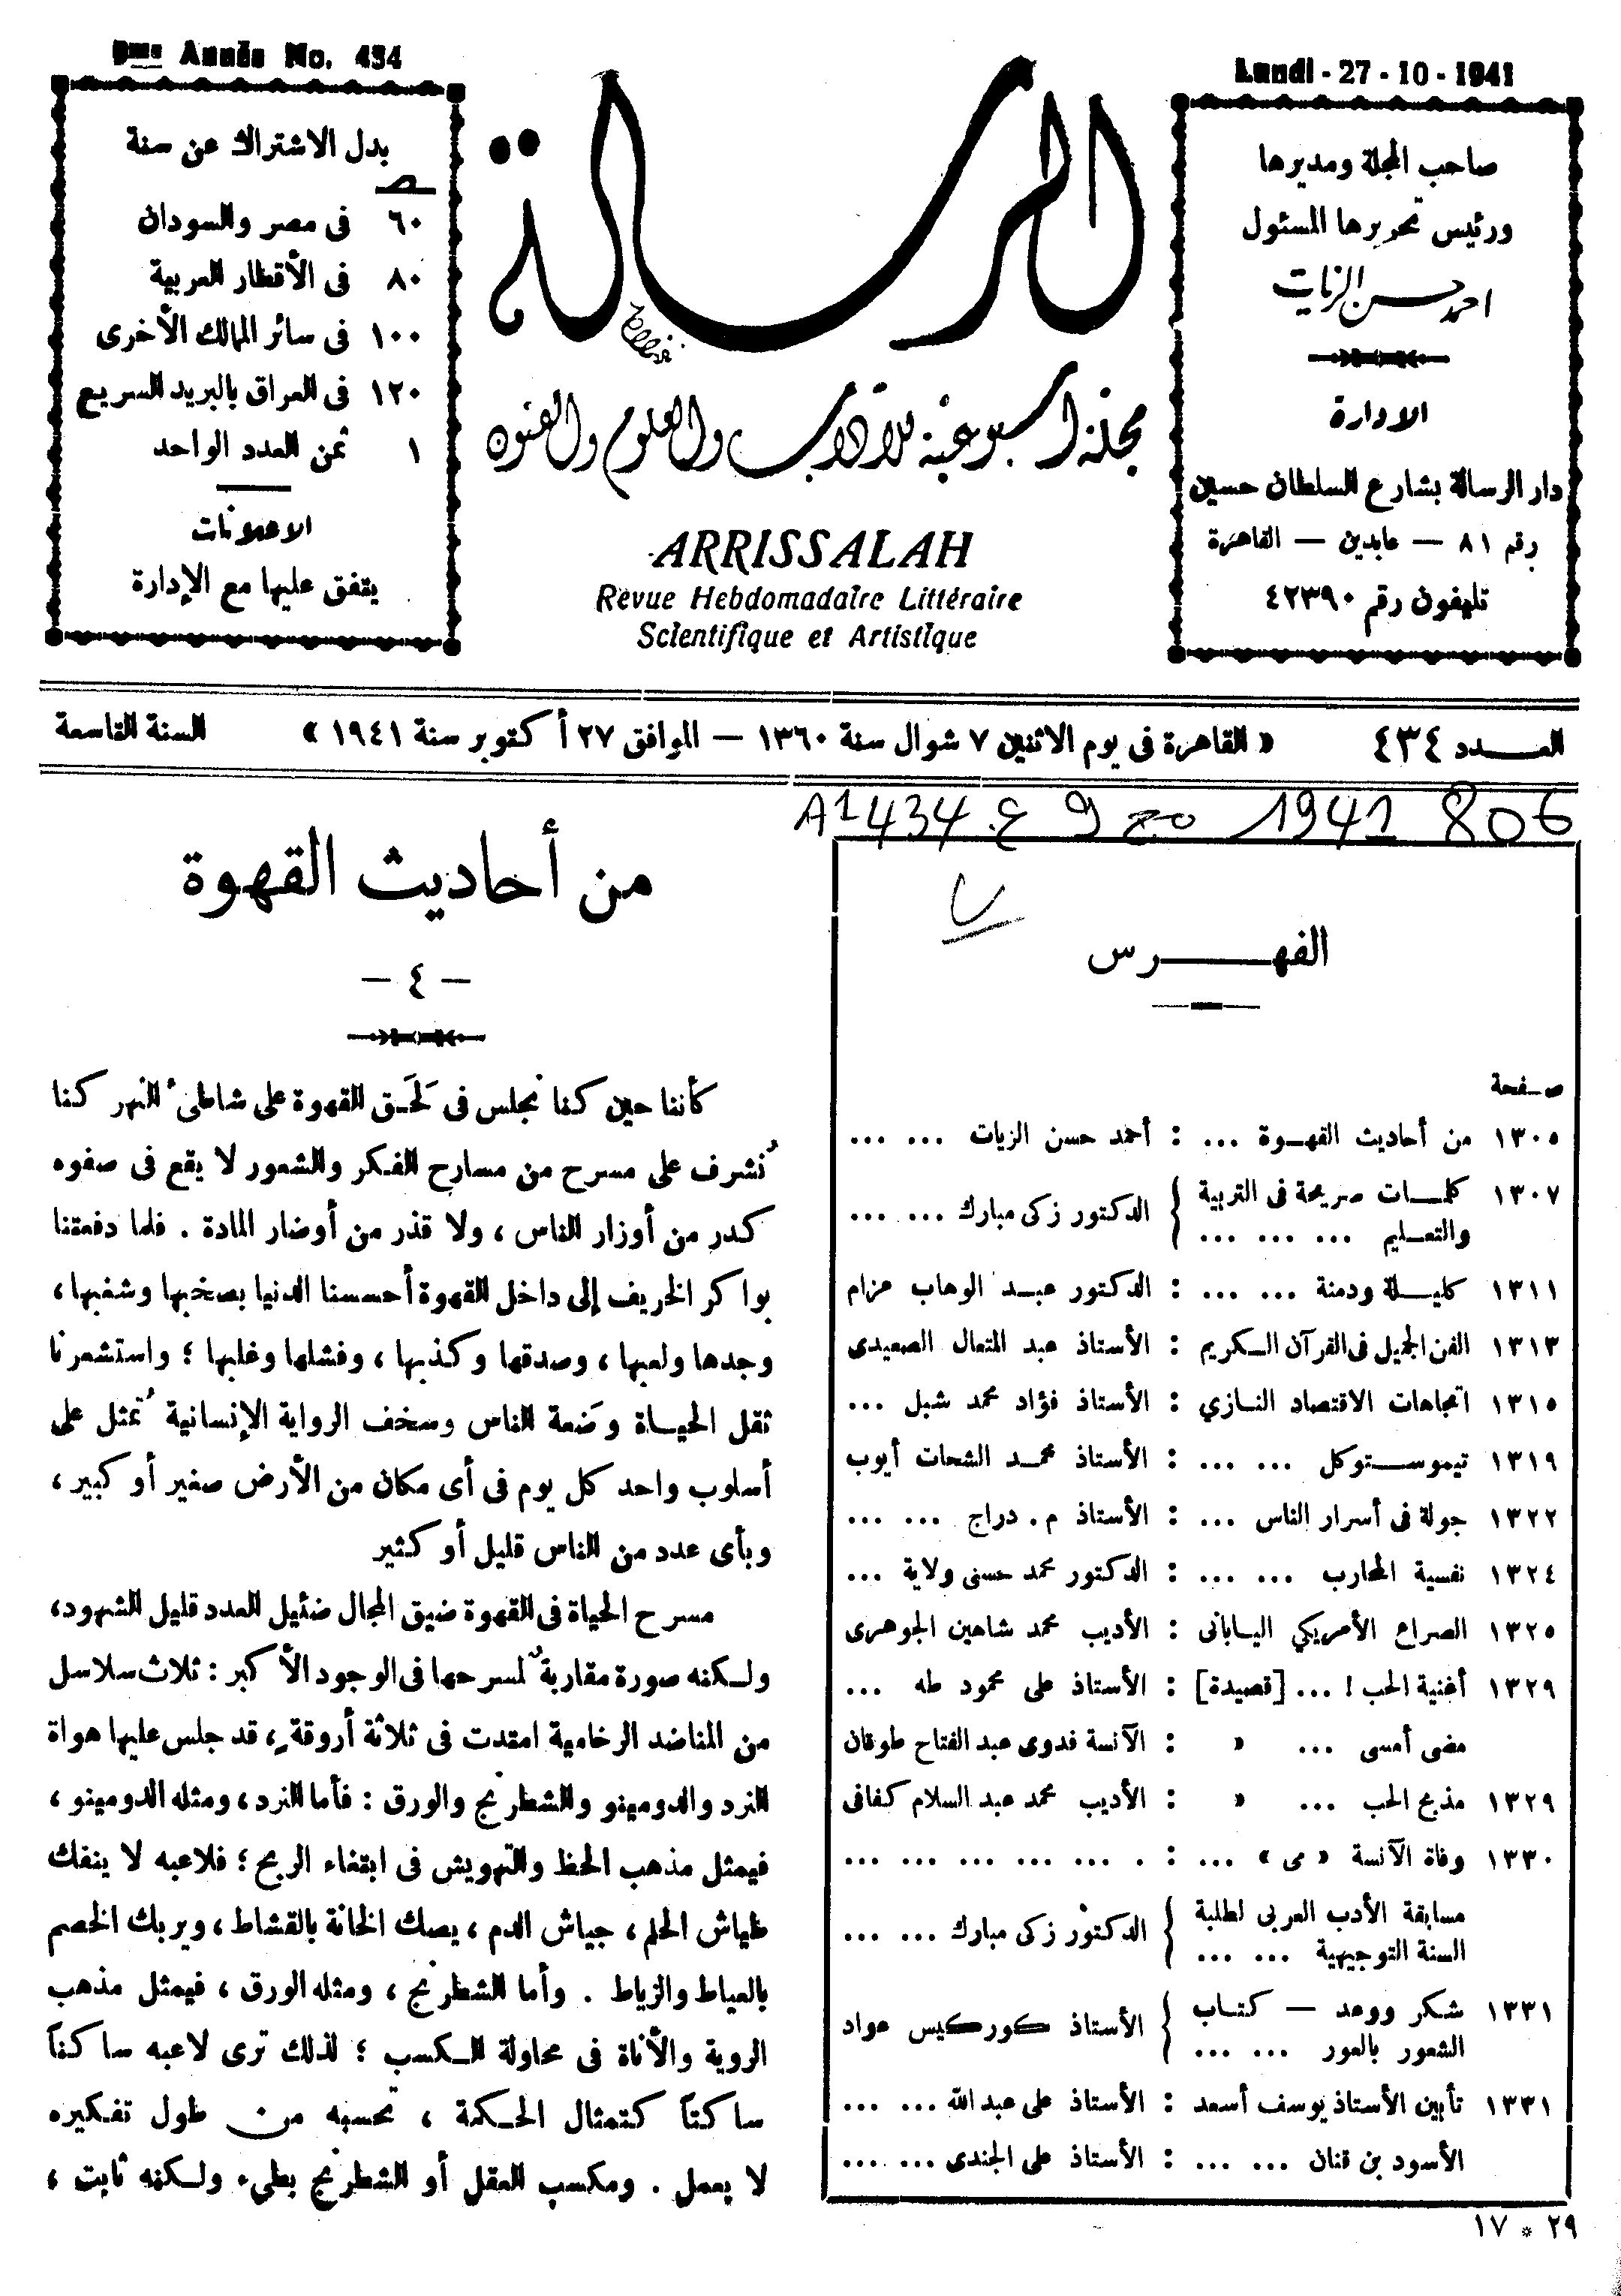 9me Année No. 434
Lundi - 27 - 10 - 1941
صاحب المجلة ومديرها
ورئيس تحريرها المسئول
احمد حسن الزيات
الادارة
دار الرسالة بشارع السلطان حسين
رقم ٨١ — عابدين — القاهرة
تليفون رقم ٤٢٣٩٠
الرسالة
مجلة أسبوعية للآداب والعلوم والفنون
ARRISSALAH
Revue Hebdomadaire Littéraire
Scientifique et Artistique
بدل الاشتراك عن سنة
ص
٦٠ فى مصر والسودان
٨٠ فى الأقطار العربية
١٠٠ فى سائر الممالك الأخرى
١٢٠ فى العراق بالبريد السريع
١ ثمن العدد الواحد
الاعلانات
يتفق عليها مع الإدارة
العـــدد ٤٣٤ « القاهرة فى يوم الاثنين ٧ شوال سنة ١٣٦٠ — الموافق ٢٧ أكتوبر سنة ١٩٤١ » السنة التاسعة
1941 806
الفهـــرس
صـفحة
١٣٠٥ من أحاديث القهـوة ... : أحمد حسن الزيات ... ...
١٣٠٧ كلمـات صريحة فى التربية
والتعـليم ... ... ... } الدكتور زكى مبارك ... ...
١٣١١ كليـلة ودمنة ... ... : الدكتور عبـد الوهاب عزام
١٣١٣ الفن الجميل فى القرآن الـكريم : الأستاذ عبد المتعال الصعيدى
١٣١٥ اتجاهات الاقتصاد النـازي : الأستاذ فؤاد محمد شبل ...
١٣١٩ تيموســتوكل ... ... : الأستاذ محمـد الشحات أيوب
١٣٢٢ جولة فى أسرار الناس ... : الأستاذ م . دراج ... ...
١٣٢٤ نفسية المحارب ... ... : الدكتور محمد حسنى ولاية ...
١٣٢٥ الصراع الأمريكي اليـابانى : الأديب محمد شاهين الجوهرى
١٣٢٩ أغنية الحب ! ... [قصيدة] : الأستاذ على محمود طه ...
مضى أمسى ... » : الآنسة فدوى عبد الفتاح طوقان
١٣٢٩ مذبح الحب ... » : الأديب محمد عبد السلام كفافى
١٣٣٠ وفاة الآنسة « مى » ... : . ... ... ... ... ...
مسابقة الأدب العربى لطلبة
السنة التوجيهية ... ... } الدكتور زكى مبارك ... ...
١٣٣١ شكر ووعد — كتـاب
الشعور بالعور ... ... } الأستاذ كوركيس عواد
١٣٣١ تأبين الأستاذ يوسف أسعد : الأستاذ على عبد الله ... ...
الأسود بن قنان ... ... : الأستاذ على الجندى ... ...
٢٩ * ١٧
من أحاديث القهوة
— ٤ —
كأننا حين كنا نجلس فى لَحَـق القهوة على شاطئ النهر كنا
نُشرف على مسرح من مسارح الفـكر والشعور لا يقع فى صفوه
كدر من أوزار الناس ، ولا قذر من أوضار المادة . فلما دفعتنا
بواكر الخريف إلى داخل القهوة أحسسنا الدنيا بصخبها وشغبها ،
وجدها ولعبها ، وصدقها وكذبها ، وفشلها وغلبها ؛ واستشعرنا
ثقل الحيـاة وضَعة الناس وسخف الرواية الإنسانية تُمثل على
أسلوب واحد كل يوم فى أى مكان من الأرض صغير أو كبير ،
وبأى عدد من الناس قليل أو كثير
مسرح الحياة فى القهوة ضيق المجال ضئيل العدد قليل الشهود،
ولـكنه صورة مقاربة لمسرحها فى الوجود الأكبر : ثلاث سلاسل
من المناضد الرخامية امتدت فى ثلاثة أروقةٍ، قد جلس عليها هواة
النرد والدومينو والشطرنج والورق : فأما النرد، ومثله الدومينو ،
فيمثل مذهب الحظ والتهويش فى ابتغاء الربح ؛ فلاعبه لا ينفك
طياش الحلم ، جياش الدم ، يصك الخانة بالقشاط ، ويربك الخصم
بالعياط والزياط . وأما الشطرنج ، ومثله الورق ، فيمثل مذهب
الروية والأناة فى محاولة الـكسب ؛ لذلك ترى لاعبه ساكناً
ساكتاً كتمثال الحـكمة ، تحسبه من طول تفـكيره
لا يعمل . ومكسب العقل أو الشطرنج بطيء ولـكنه ثابت ،